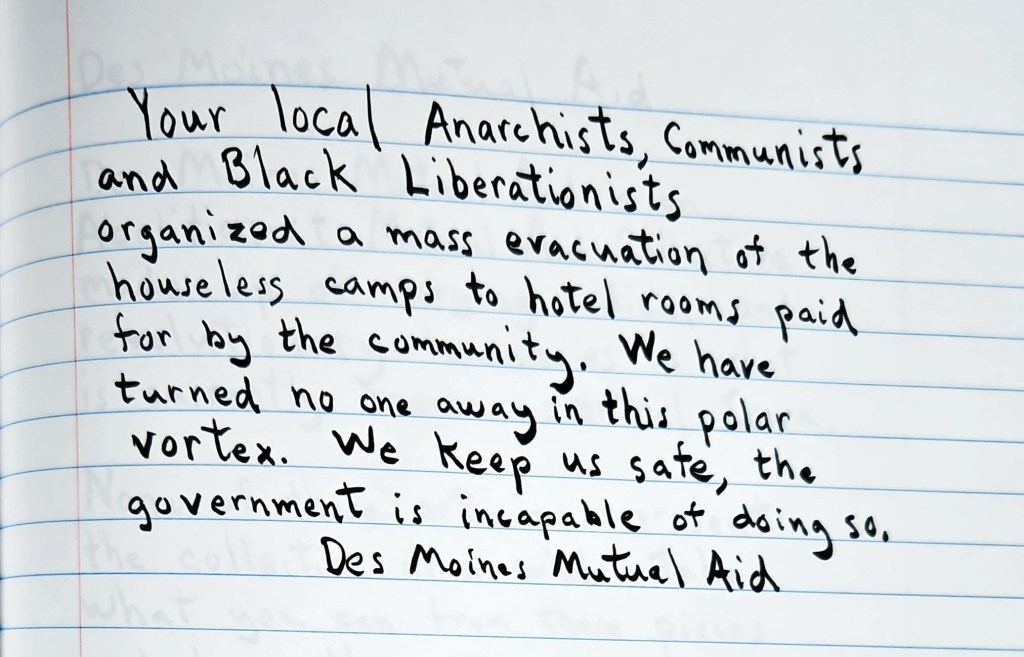 Your local Anarchists, Communists
and Black Liberationists
organized a mass evacuation of the
houseless camps to hotel rooms paid
for by the community. We have
turned no one away in this polar
vortex. We keep us safe, the
government is incapable of doing so.
Des Moines Mutual Aid